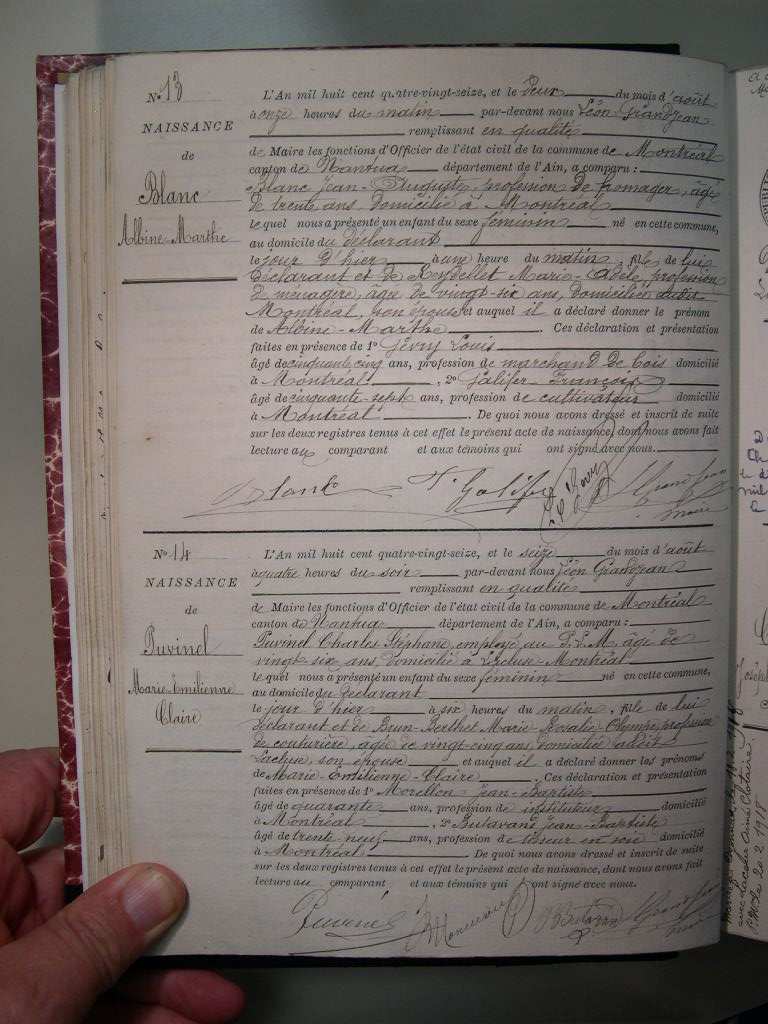 No 13
NAISSANCE
de
Blanc
Albine-Marthe
L'An mil huit cent quatre-vingt-seize, et le deux du mois d'août
à onze heures du matin par-devant nous Léon Grandjean
remplissant en qualité
de Maire les fonctions d'Officier de l'état civil de la commune de Montréal
canton de Nantua département de l'Ain, a comparu :
Blanc Jean-Auguste, profession de fromager, âgé
de trente ans, domicilié à Montréal
lequel nous a présenté un enfant du sexe féminin né en cette commune,
au domicile du déclarant
le jour d'hier à une heure du matin, fille de lui
déclarant et de Reydellet Marie-Adèle, profession
de ménagère, âgée de vingt-six ans, domiciliée audit
Montréal, son épouse et auquel il a déclaré donner le prénom
de Albine-Marthe. Ces déclaration et présentation
faites en présence de 1o Louis
âgé de cinquante cinq ans, profession de marchand de bois domicilié
à Montréal, 2o Galifer François
âgé de cinquante-sept ans, profession de cultivateur domicilié
à Montréal. De quoi nous avons dressé et inscrit de suite
sur les deux registres tenus à cet effet le présent acte de naissance, dont nous avons fait
lecture au comparant et aux témoins qui ont signé avec nous.
Blanc F. Galifer Grandjean
maire
No 14
NAISSANCE
de
Puvinel
Marie-Emilienne
Claire
L'An mil huit cent quatre-vingt-seize, et le seize du mois d'août
à quatre heures du soir par-devant nous Léon Grandjean
remplissant en qualité
de Maire les fonctions d'Officier de l'état civil de la commune de Montréal
canton de Nantua département de l'Ain, a comparu :
Puvinel Charles Stéphane, employé au P.L.M. âgé de
vingt six ans, domicilié à Lacluse-Montréal
lequel nous a présenté un enfant du sexe féminin né en cette commune,
au domicile du déclarant
le jour d'hier à six heures du matin, fille de lui
déclarant et de Brun-Berthet Marie-Rosalie-Olympe, profession
de couturière, âgée de vingt-cinq ans, domiciliée audit
Lacluse, son épouse et auquel il a déclaré donner les prénoms
de Marie-Emilienne-Claire. Ces déclaration et présentation
faites en présence de 1o Jean-Baptiste
âgé de quarante ans, profession de instituteur domicilié
à Montréal, 2o Butavand Jean-Baptiste
âgé de trente neuf ans, profession de tisseur en soie domicilié
à Montréal. De quoi nous avons dressé et inscrit de suite
sur les deux registres tenus à cet effet le présent acte de naissance, dont nous avons fait
lecture au comparant et aux témoins qui ont signé avec nous.
Puvinel Butavan Grandjean
maire